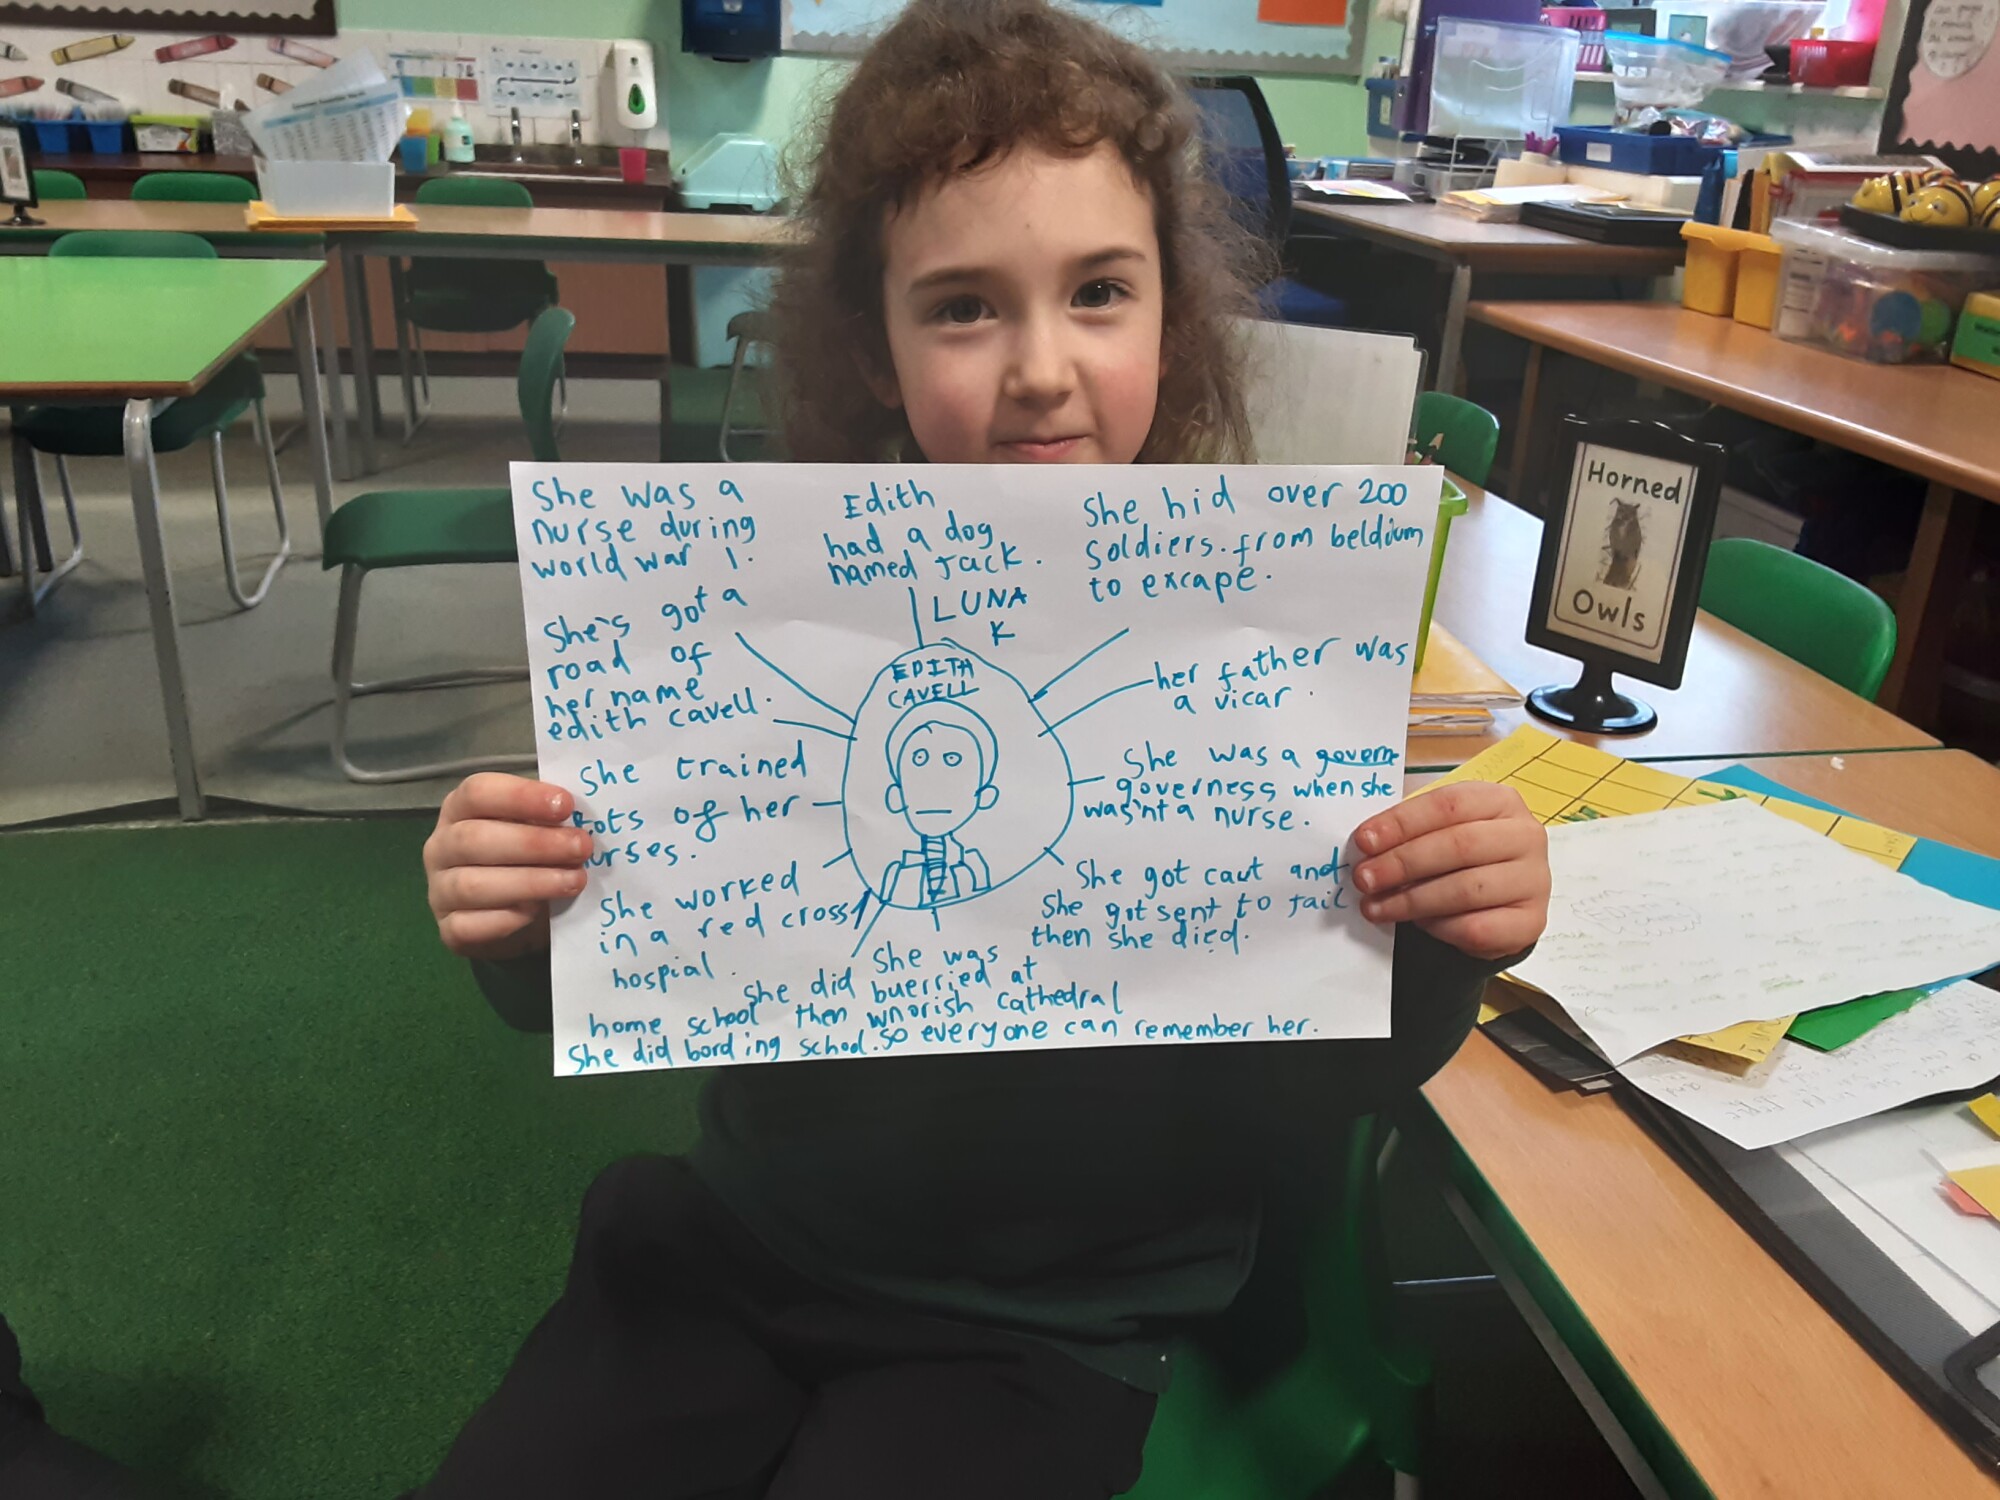 She was a
nurse during
world war 1.
Edith
had a dog
named Jack.
She hid over 200
soldiers. from beldium
to excape.
LUNA
K
She's got a
road of
her name
edith cavell.
EDITH
CAVELL
her father was
a vicar.
She trained
lots of her
nurses.
She was a govern
governess when she
was'nt a nurse.
She worked
in a red cross
hospial.
She got caut and
She got sent to Jail
then she died.
She was
buerried at
wnorish cathedral
so everyone can remember her.
She did
home school then
She did bording school.
Horned
Owls